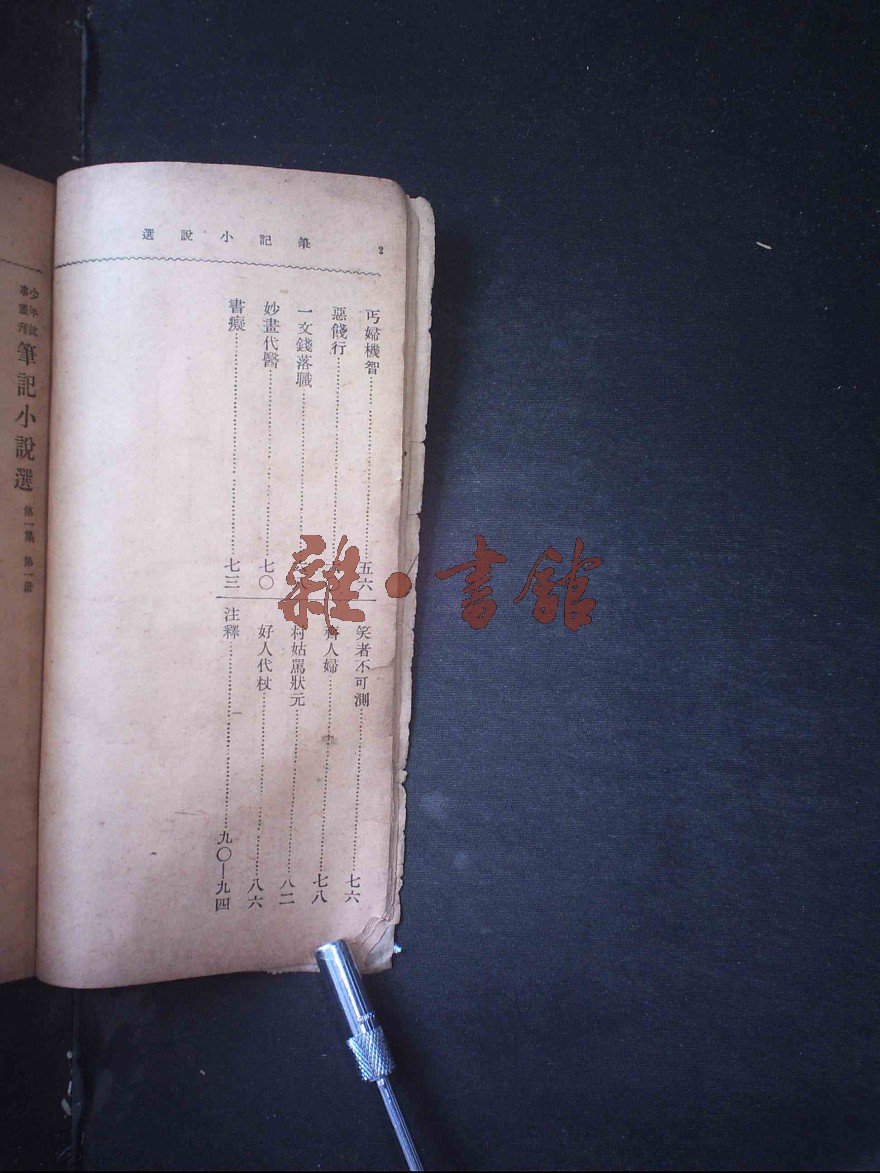 2
筆記小說選
丐婦機智 五六
惡餞行
一文錢落職
妙畫代醫 七〇
書癡 七三
笑者不可測 七六
齊人婦 七八
村姑罵狀元 八二
好人代杖 八六
注釋 九〇—九四
少年故事叢刊 筆記小說選 第一集 第一册
雜·書館